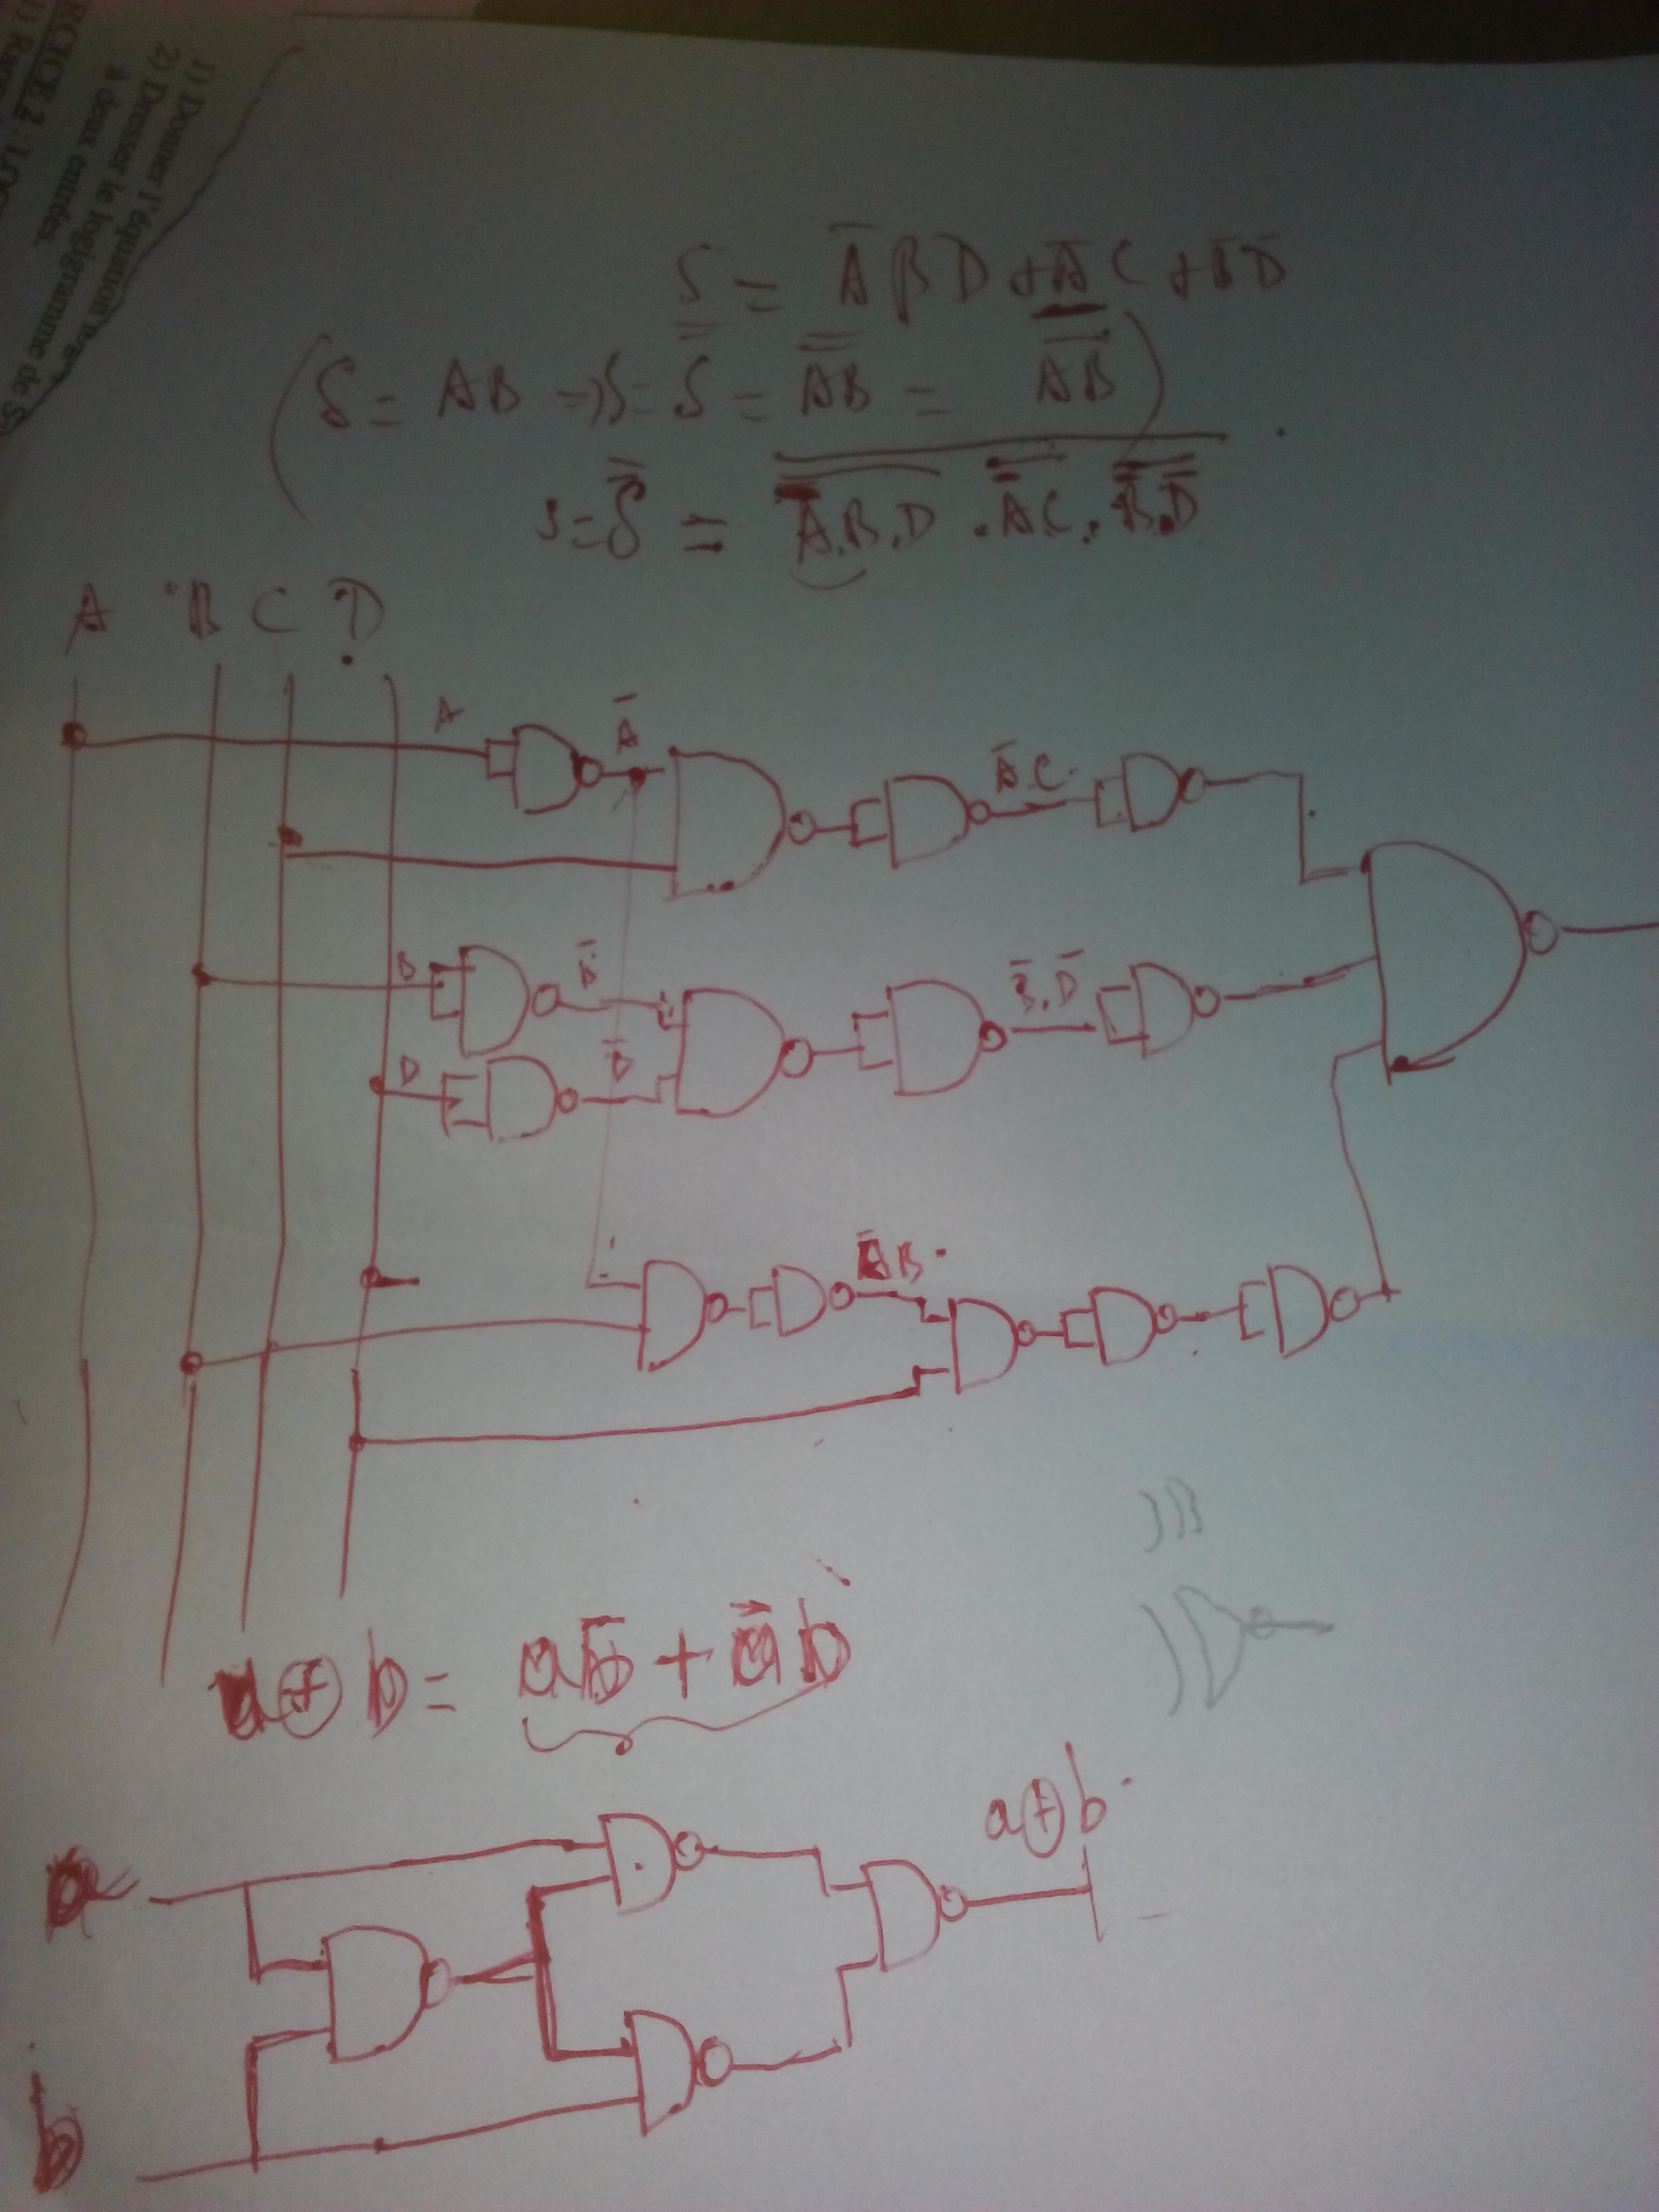 RCICE 2 : LOG
1) Donner l'équation
2) Dresser le logigramme de S
à deux entrées.
S = A̅BD + A̅C + B̅D̅
(S = AB → S = S̿ = A̿B̿ = A̿B̿)
S = S̿ = A̅.B.D . A̅C . B̅.D̅
A B C D
A A̅
A̅.C
B B̅ B̅.D̅
D D̅
A̅B
a⊕b = ab̅ + a̅b
a⊕b
a
b